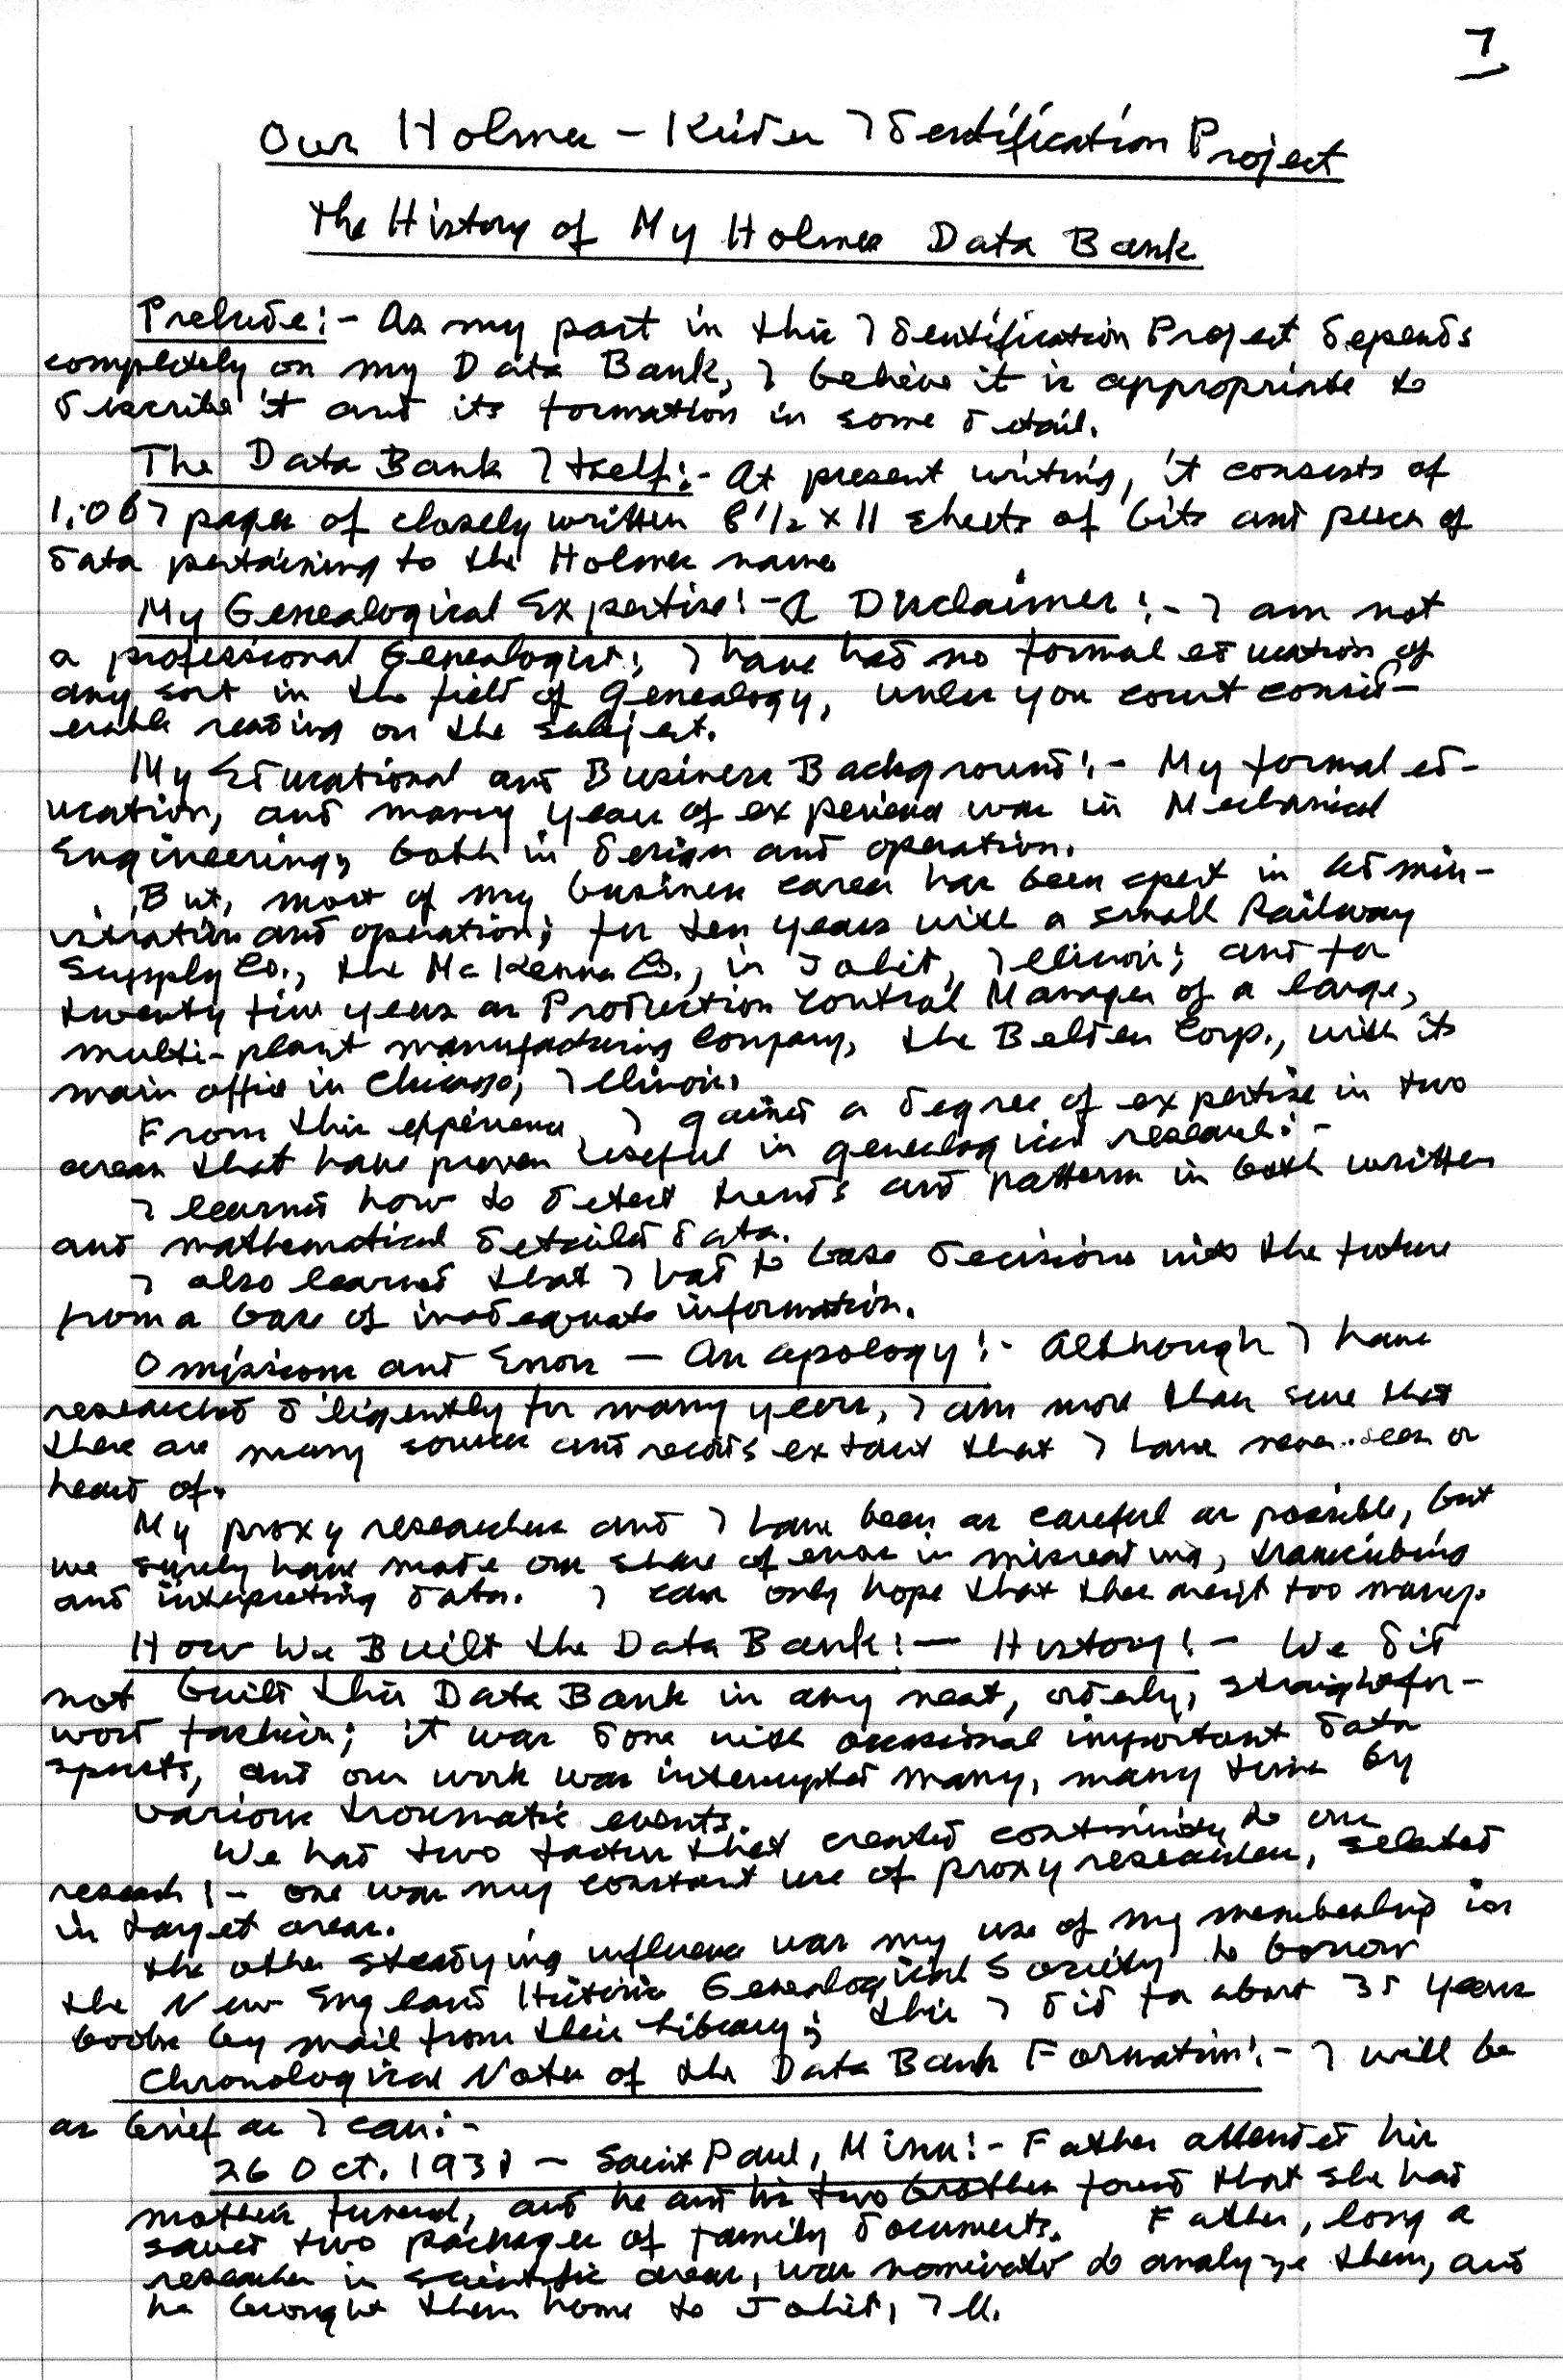 7
Our Holmes - Keider Identification Project
The History of My Holmes Data Bank
Prelude:- As my part in this Identification Project depends
completely on my Data Bank, I believe it is appropriate to
describe it and its formation in some detail.
The Data Bank Itself:- At present writing, it consists of
1,067 pages of closely written 8 1/2 x 11 sheets of bits and pieces of
data pertaining to the Holmes name
My Genealogical Expertise! - A Disclaimer:- I am not
a professional Genealogist; I have had no formal education of
any sort in the field of Genealogy, unless you count consid-
erable reading on the subject.
My Educational and Business Background:- My formal ed-
ucation, and many years of experience was in Mechanical
Engineering, both in design and operation.
But, most of my business career has been spent in admin-
istration and operation; for ten years with a small Railway
Supply Co., the McKenna Co., in Joliet, Illinois; and for
twenty five years as Production Control Manager of a large,
multi-plant manufacturing company, the Belden Corp., with its
main office in Chicago, Illinois.
From this experience I gained a degree of expertise in two
areas that have proven useful in genealogical research:-
I learned how to detect trends and patterns in both written
and mathematical detailed data.
I also learned that I had to base decisions into the future
from a base of inadequate information.
Omissions and Errors - An apology:- Although I have
researched diligently for many years, I am more than sure that
there are many sources and records extant that I have never seen or
heard of.
My proxy researchers and I have been as careful as possible, but
we surely have made our share of errors in misreading, transcribing
and interpreting data. I can only hope that there aren't too many.
How We Built the Data Bank:- History:- We did
not build this Data Bank in any neat, orderly, straightfor-
word fashion; it was done with occasional important data
spurts, and our work was interrupted many, many times by
various troumatic events.
We had two factors that created continuity to our
research:- one was my constant use of proxy researchers, selected
in target areas.
The other steadying influence was my use of my membership in
the New England Historic Genealogical Society to borrow
books by mail from their Library; this I did for about 35 years
Chronological Notes of the Data Bank Formation:- I will be
as brief as I can:-
26 Oct. 1931 - Saint Paul, Minn:- Father attended his
mother's funeral, and he and his two brothers found that she had
saved two packages of family documents. Father, long a
researcher in scientific areas, was nominated to analyze them, and
he brought them home to Joliet, Ill.